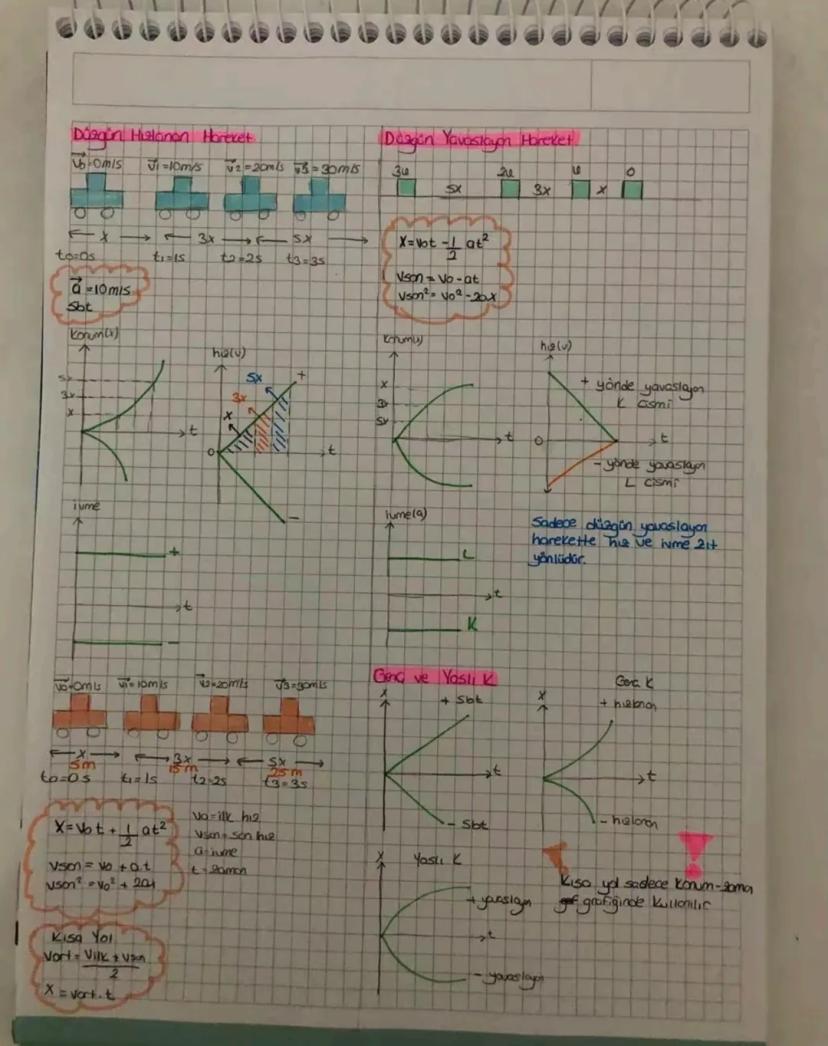 Düzgün Hızlanan Hareket
V0=0m/s V1=10m/s V2=20m/s V3=30m/s
x 3x 5x
t0=0s t1=1s t2=2s t3=3s
a=10m/s
Sbt
Konum(x)
5x
3x
x
t
hız(v)
5x
3x
x
+
0
t
-
ivme
+
t
-
V0=0m/s V1=10m/s V2=20m/s V3=30m/s
x 3x 5x
5m 15m 25m
t0=0s t1=1s t2=2s t3=3s
X=V0t+1/2 at²
Vson=V0+a.t
Vson²=V0²+2a
V0=ilk hız
Vson=son hız
a=ivme
t=zaman
Kısa Yol
Vort=Vilk+Vson/2
X=Vort.t
Düzgün Yavaşlayan Hareket
3v 2v v 0
5x 3x x
X=V0t-1/2 at²
Vson=V0-at
Vson²=V0²-2ax
x
3x
5x
t
hız(v)
+ yönde yavaşlayan
K cismi
0
t
- yönde yavaşlayan
L cismi
ivme(a)
L
t
K
Sadece düzgün yavaşlayan
harekette hız ve ivme zıt
yönlüdür.
Genç ve Yaşlı K
X
+ Sbt
t
- Sbt
Genç K
X
+ hızlanan
t
- hızlanan
X
Yaşlı K
+ yavaşlayan
t
- yavaşlayan
Kısa yol sadece konum-zaman
grafiğinde kullanılır